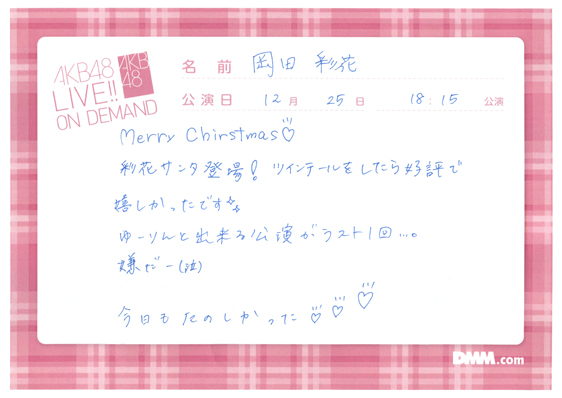 AKB48
LIVE!!
ON DEMAND
AKB
48
名前 岡田 彩花
公演日 12月 25日 18:15 公演
Merry Chirstmas♡
彩花サンタ登場! ツインテールをしたら好評で
嬉しかったです
ゆーりんと出来る公演がラスト1回...。
嫌だー(泣)
今日もたのしかった♡♡♡
DMM.com